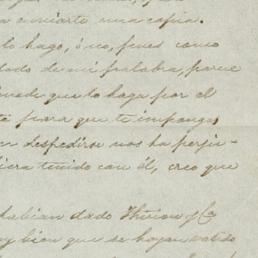 a enviarte una copia.
lo hago, ó no, pues como
dado de mi palabra, parece
puede que lo haga por el
para que te imponga,
despedirse nos ha perju-
tenido con él, creo que
habian dado Thirion y Cª
bien que se hayan